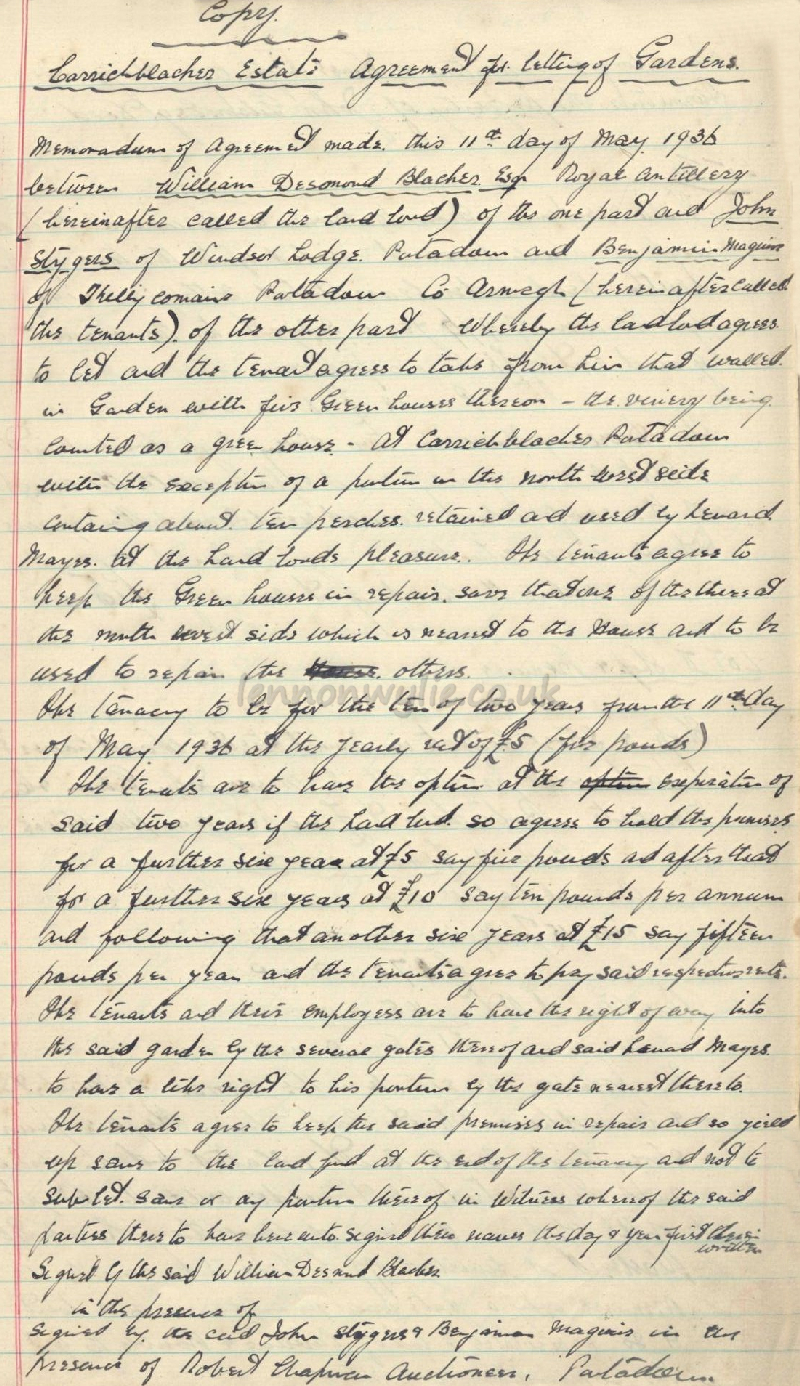 Copy.
Carrickblacker Estate Agreement for letting of Gardens.
Memoradum of Agreement made this 11th day of May 1936
between William Desmond Blacker Esq Royal Artillery
(hereinafter called the land lord) of the one part and John
Stygers of Windsor Lodge Portadown and Benjamin Maginnis
of Portadown Co Armagh (hereinafter called
the tenants) of the other part Whereby the landlord agrees
to let and the tenant agrees to take from him that walled
in Garden with five Green houses thereon - the vinery being
counted as a green house - at Carrickblacker Portadown
with the exception of a portion on the north west side
containing about ten perches retained and used by Leonard
Mayes. at the Land lords pleasure. The tenants agree to
keep the Green houses in repair, save that one of the three at
the north west side which is nearest to the House and to be
used to repair the others.
lennonwylie.co.uk
The tenancy to be for the term of two years from the 11th day
of May 1936 at the yearly rent of £5 (five pounds)
The tenants are to have the option at the option experation of
said two years if the land lord so agrees to hold the premises
for a further six years at £5 say five pounds and after that
for a further six years at £10 say ten pounds per annum
and following that another six years at £15 say fifteen
pounds per year and the tenants agree to pay said respective rents.
The tenants and their employees are to have the right of way into
the said garden by the several gates thereof and said Leonard Mayes
to have a like right to his portion by the gate nearest thereto
The tenants agree to keep the said premises in repair and so yield
up same to the land lord at the end of the tenancy and not to
sublet same or any portion thereof in Witness whereof the said
parties thereto have hereunto signed their names the day & year first
written
Signed by the said William Desmond Blacker
in the presence of
Signed by the said John Stygers & Benjamin Maginnis in the
presence of Robert Chapman Auctioneer, Portadown